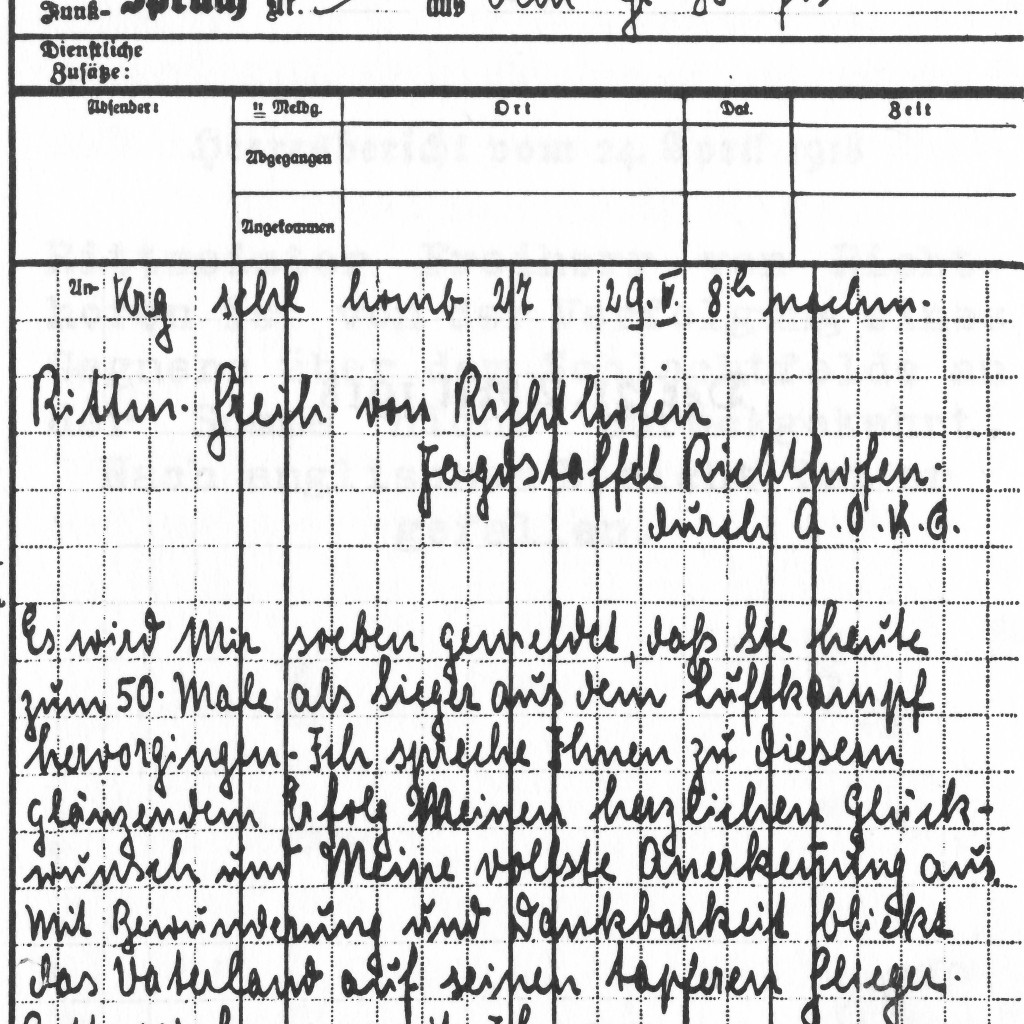 Funk- Spruch Nr.
Dienstliche
Zusätze:
Absender: Meldg. Ort Dat. Zeit
Abgegangen
Angekommen
An- Krg schl homb 27 29.IV. 8h nachm.
Rittm. Freih. von Richthofen
Jagdstaffel Richthofen.
durch A.O.K.6.
Es wird Mir soeben gemeldet, daß Sie heute
zum 50. Male als Sieger aus dem Luftkampf
hervorgingen. Ich spreche Ihnen zu diesem
glänzenden Erfolg Meinen herzlichen Glück-
wunsch und Meine vollste Anerkennung aus.
Mit Bewunderung und Dankbarkeit blickt
das Vaterland auf seinen tapferen Flieger.